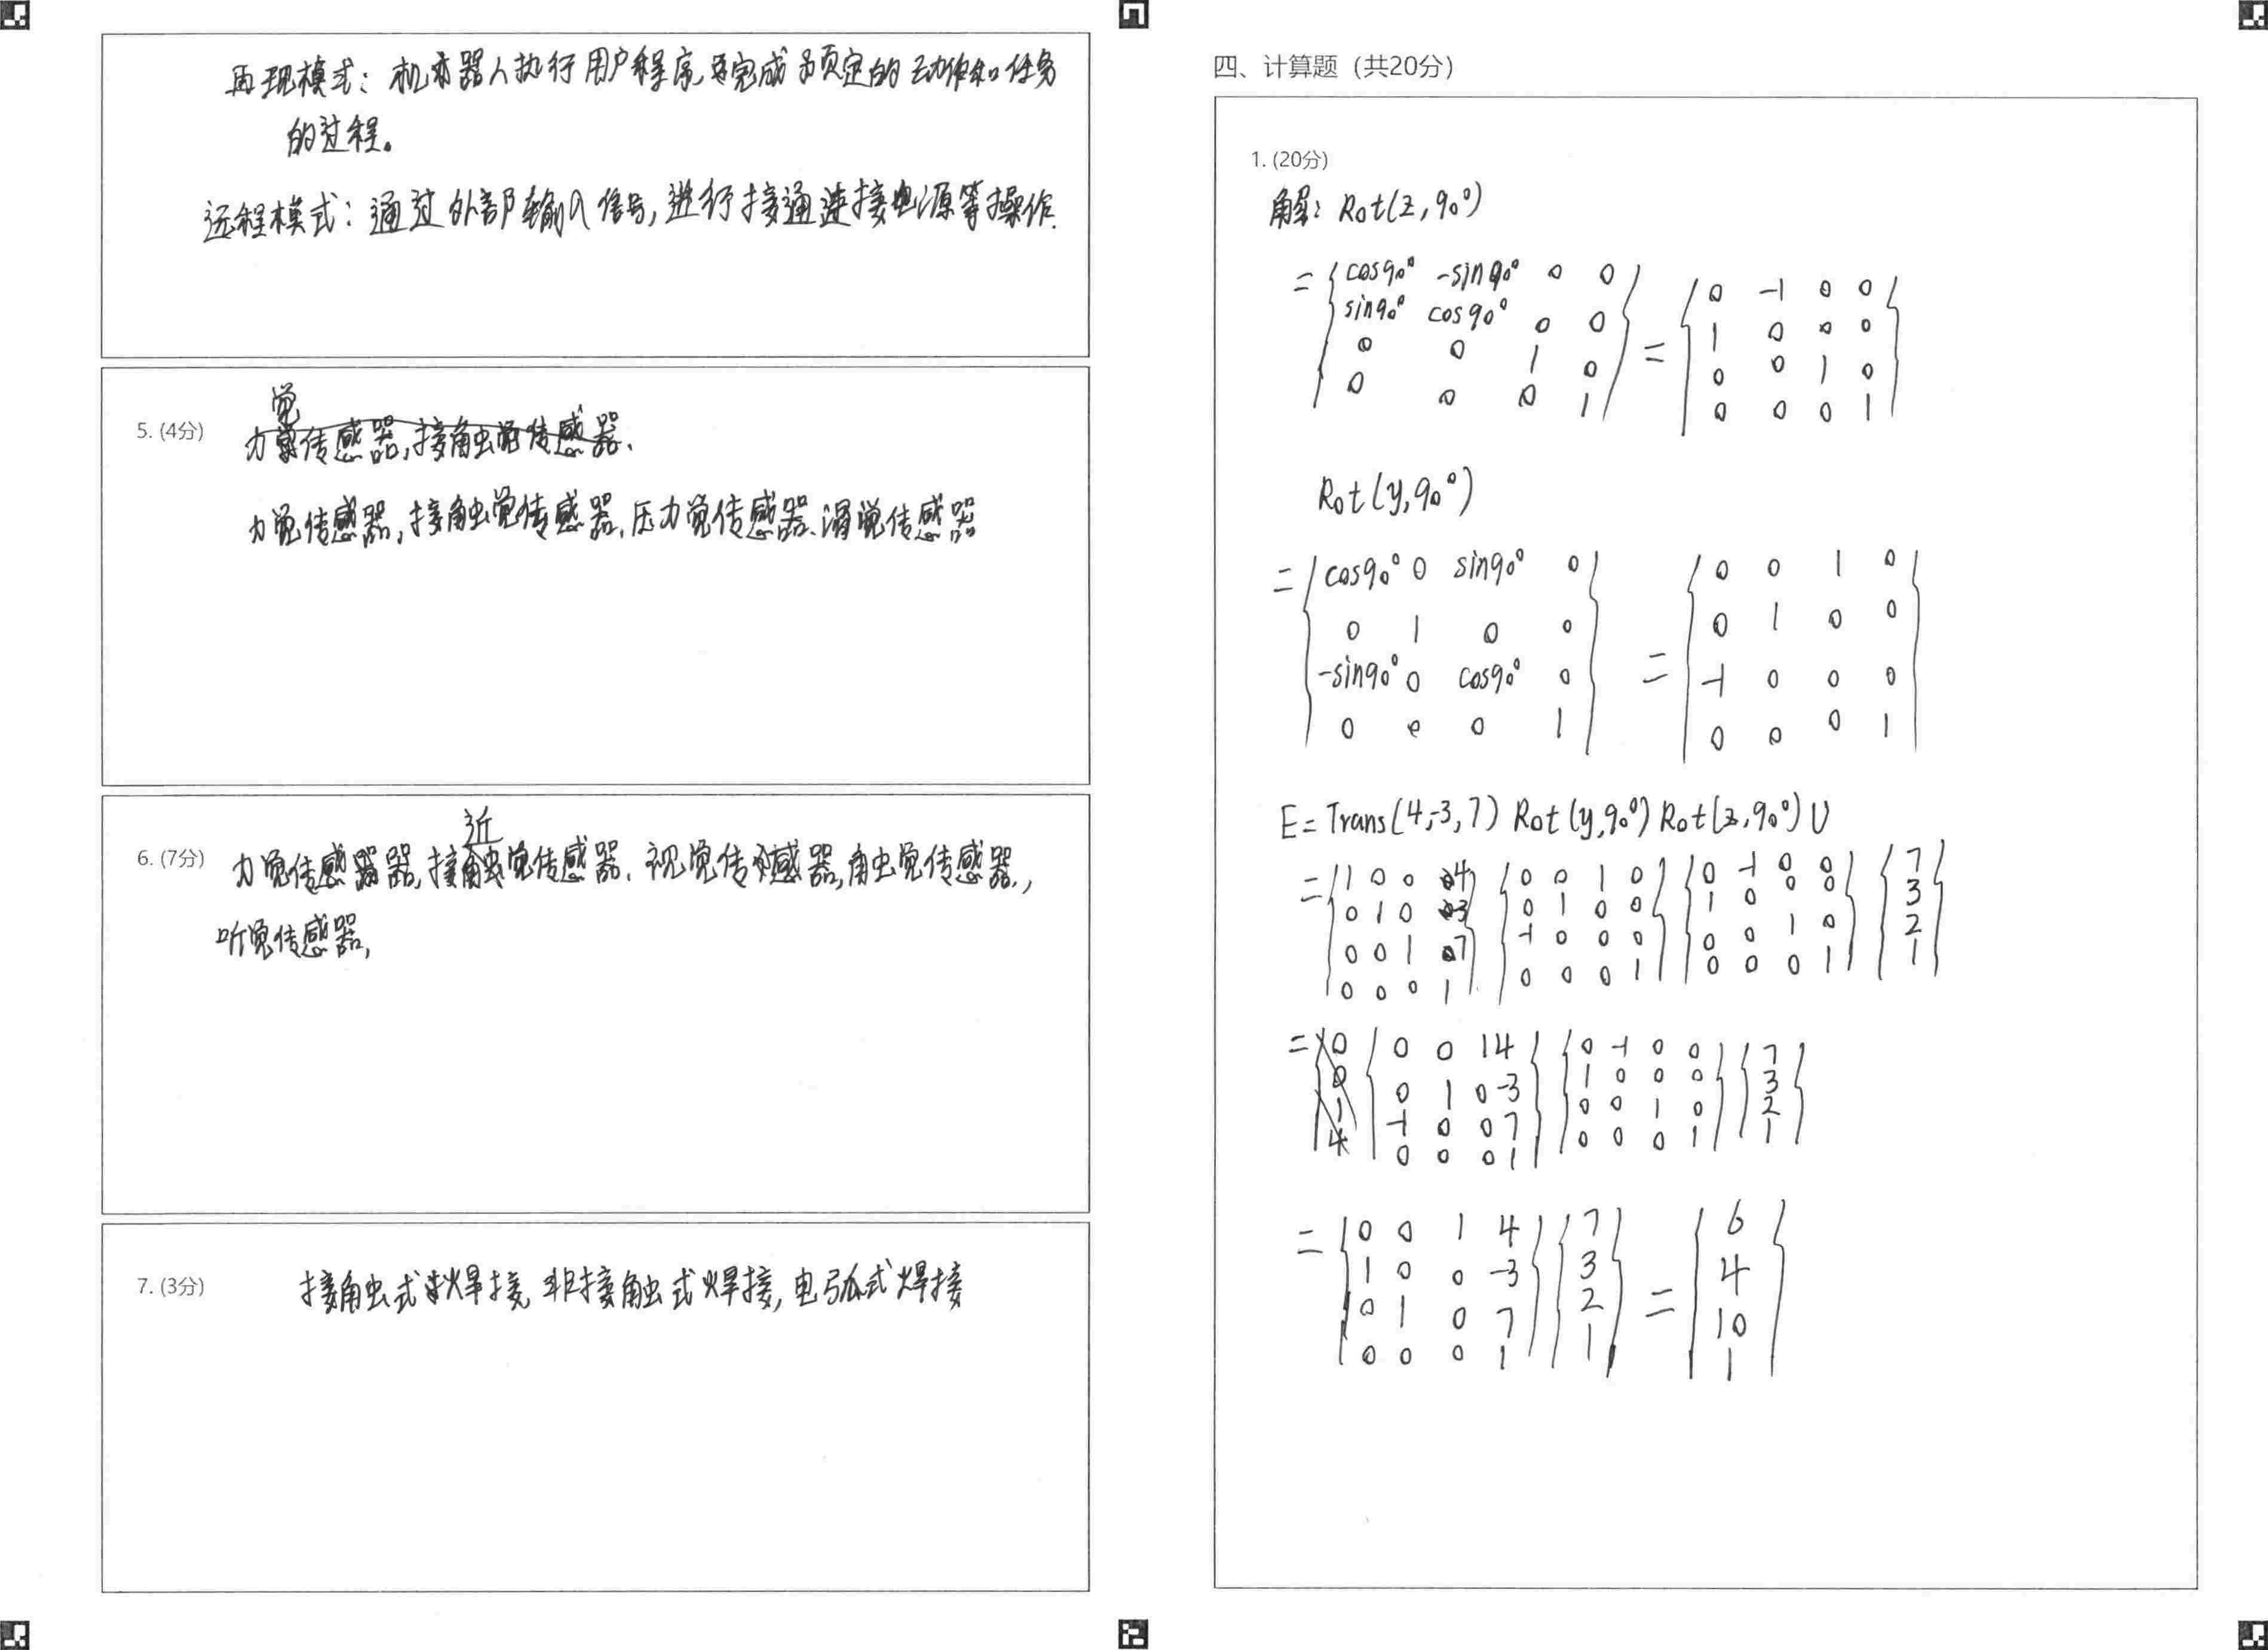 再现模式：机器人执行用户程序,完成预定的动作和任务
的过程。
远程模式：通过外部输入信号,进行接通连接电源等操作.
5. (4分)
觉
力传感器,接触觉传感器.
力觉传感器,接触觉传感器.压力觉传感器.滑觉传感器
6. (7分)
近
力觉传感器,接觉传感器.视觉传感器,触觉传感器.,
听觉传感器,
7. (3分) 接触式焊接,非接触式焊接,电弧式焊接
四、计算题（共20分）
1. (20分)
解: Rot(z,90°)
= cos90° -sin90° 0 0 = 0 -1 0 0
sin90° cos90° 0 0 1 0 0 0
0 0 1 0 0 0 1 0
0 0 0 1 0 0 0 1
Rot(y,90°)
= cos90° 0 sin90° 0 = 0 0 1 0
0 1 0 0 0 1 0 0
-sin90° 0 cos90° 0 -1 0 0 0
0 0 0 1 0 0 0 1
E = Trans(4,-3,7) Rot(y,90°) Rot(z,90°) U
= 1 0 0 4 0 0 1 0 0 -1 0 0 7
0 1 0 -3 0 1 0 0 1 0 0 0 3
0 0 1 7 -1 0 0 0 0 0 1 0 2
0 0 0 1 0 0 0 1 0 0 0 1 1
= 0 0 1 4 0 -1 0 0 7
0 1 0 -3 1 0 0 0 3
-1 0 0 7 0 0 1 0 2
0 0 0 1 0 0 0 1 1
= 0 0 1 4 7 = 6
1 0 0 -3 3 4
0 1 0 7 2 10
0 0 0 1 1 1